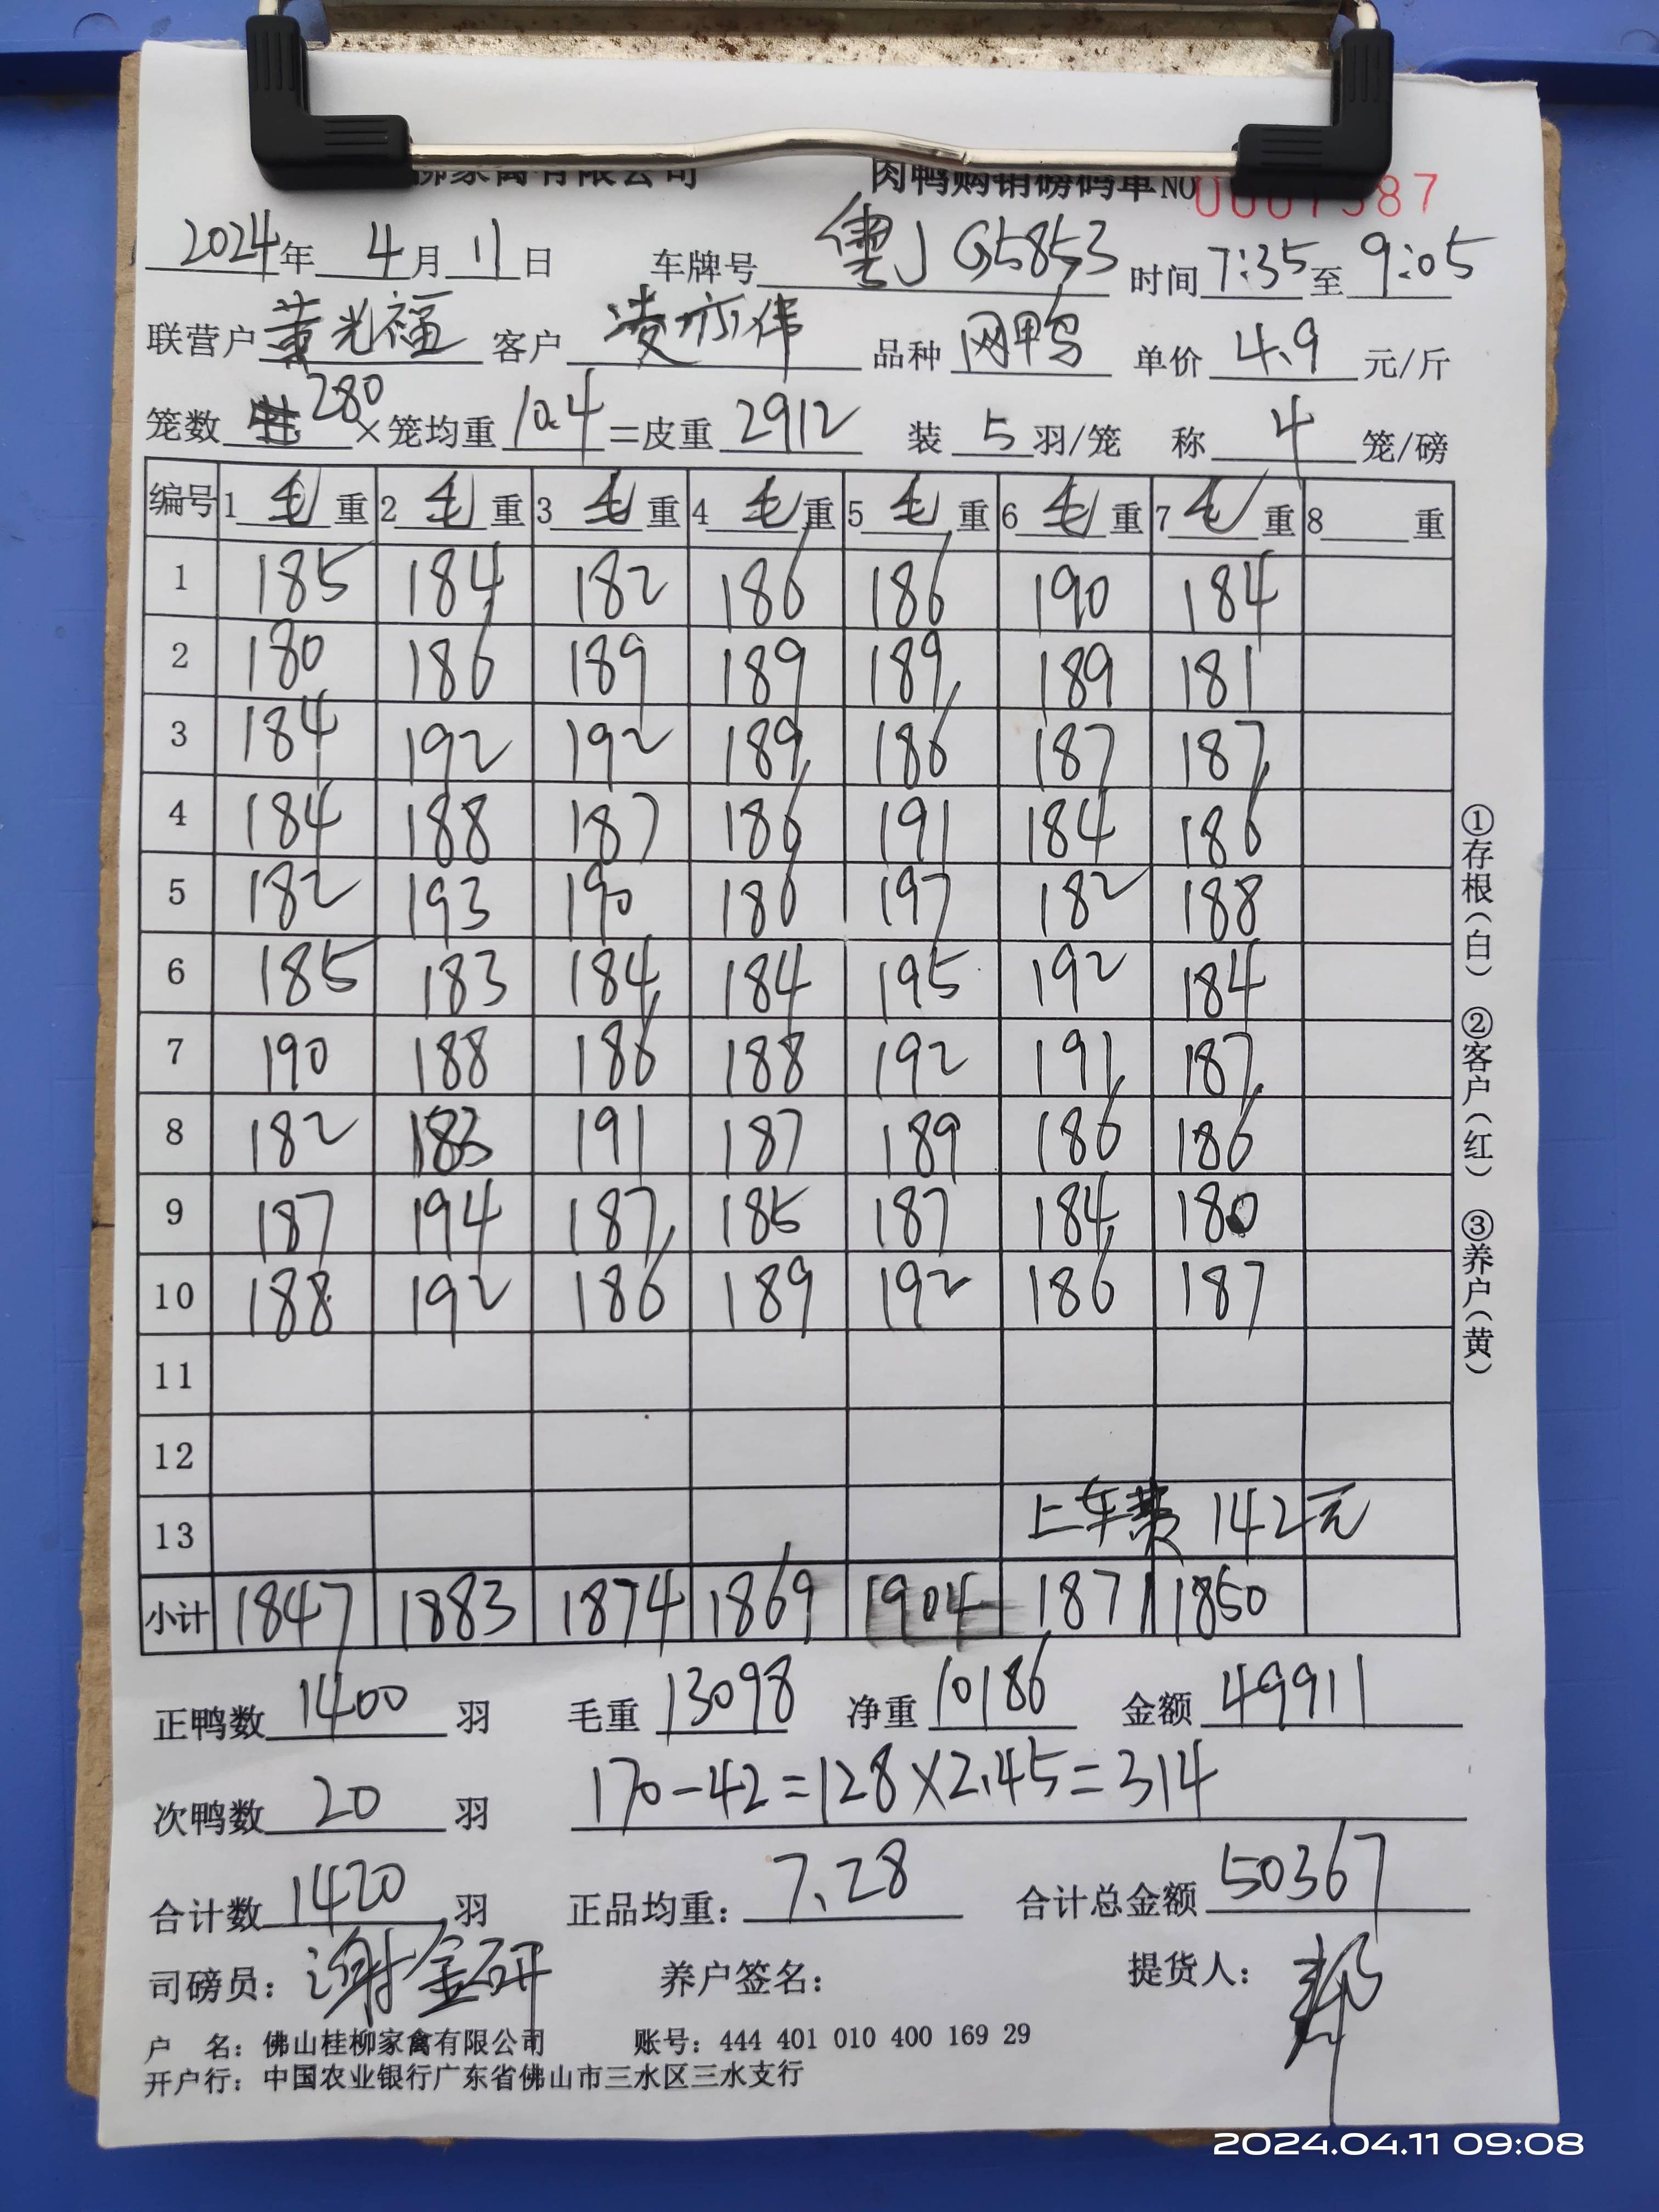 柳家禽有限公司 肉鸭购销磅码单 NO 0007587
2024年 4月 11日 车牌号 粤J G5853 时间 7:35 至 9:05
联营户 黄光福 客户 凌亦伟 品种 网鸭 单价 4.9 元/斤
笼数 280 ×笼均重 10.4 =皮重 2912 装 5 羽/笼 称 4 笼/磅
编号 1 毛 重 2 毛 重 3 毛 重 4 毛 重 5 毛 重 6 毛 重 7 毛 重 8 重
1 185 184 182 186 186 190 184
2 180 186 189 189 189 189 181
3 184 192 192 189 186 187 187
4 184 188 187 186 191 184 186
5 182 193 190 186 197 182 188
6 185 183 184 184 195 192 184
7 190 188 186 188 192 191 187
8 182 183 191 187 189 186 186
9 187 194 187 185 187 184 180
10 188 192 186 189 192 186 187
11
12
13 上车费 142元
小计 1847 1883 1874 1869 1904 1871 1850
①存根(白) ②客户(红) ③养户(黄)
正鸭数 1400 羽 毛重 13098 净重 10186 金额 49911
次鸭数 20 羽 170-42=128×2.45=314
合计数 1420 羽 正品均重: 7.28 合计总金额 50367
司磅员: 谢金研 养户签名: 提货人:
户 名: 佛山桂柳家禽有限公司 账号: 444 401 010 400 169 29
开户行: 中国农业银行广东省佛山市三水区三水支行
2024.04.11 09:08